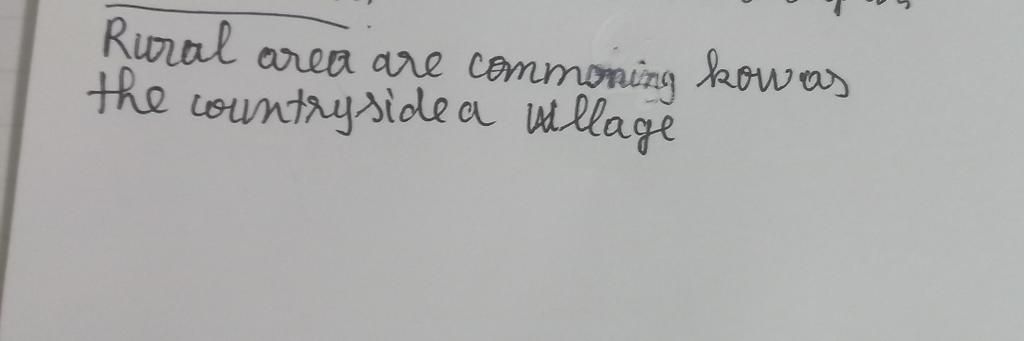 Rural area are commoning kow as
the countryside a village